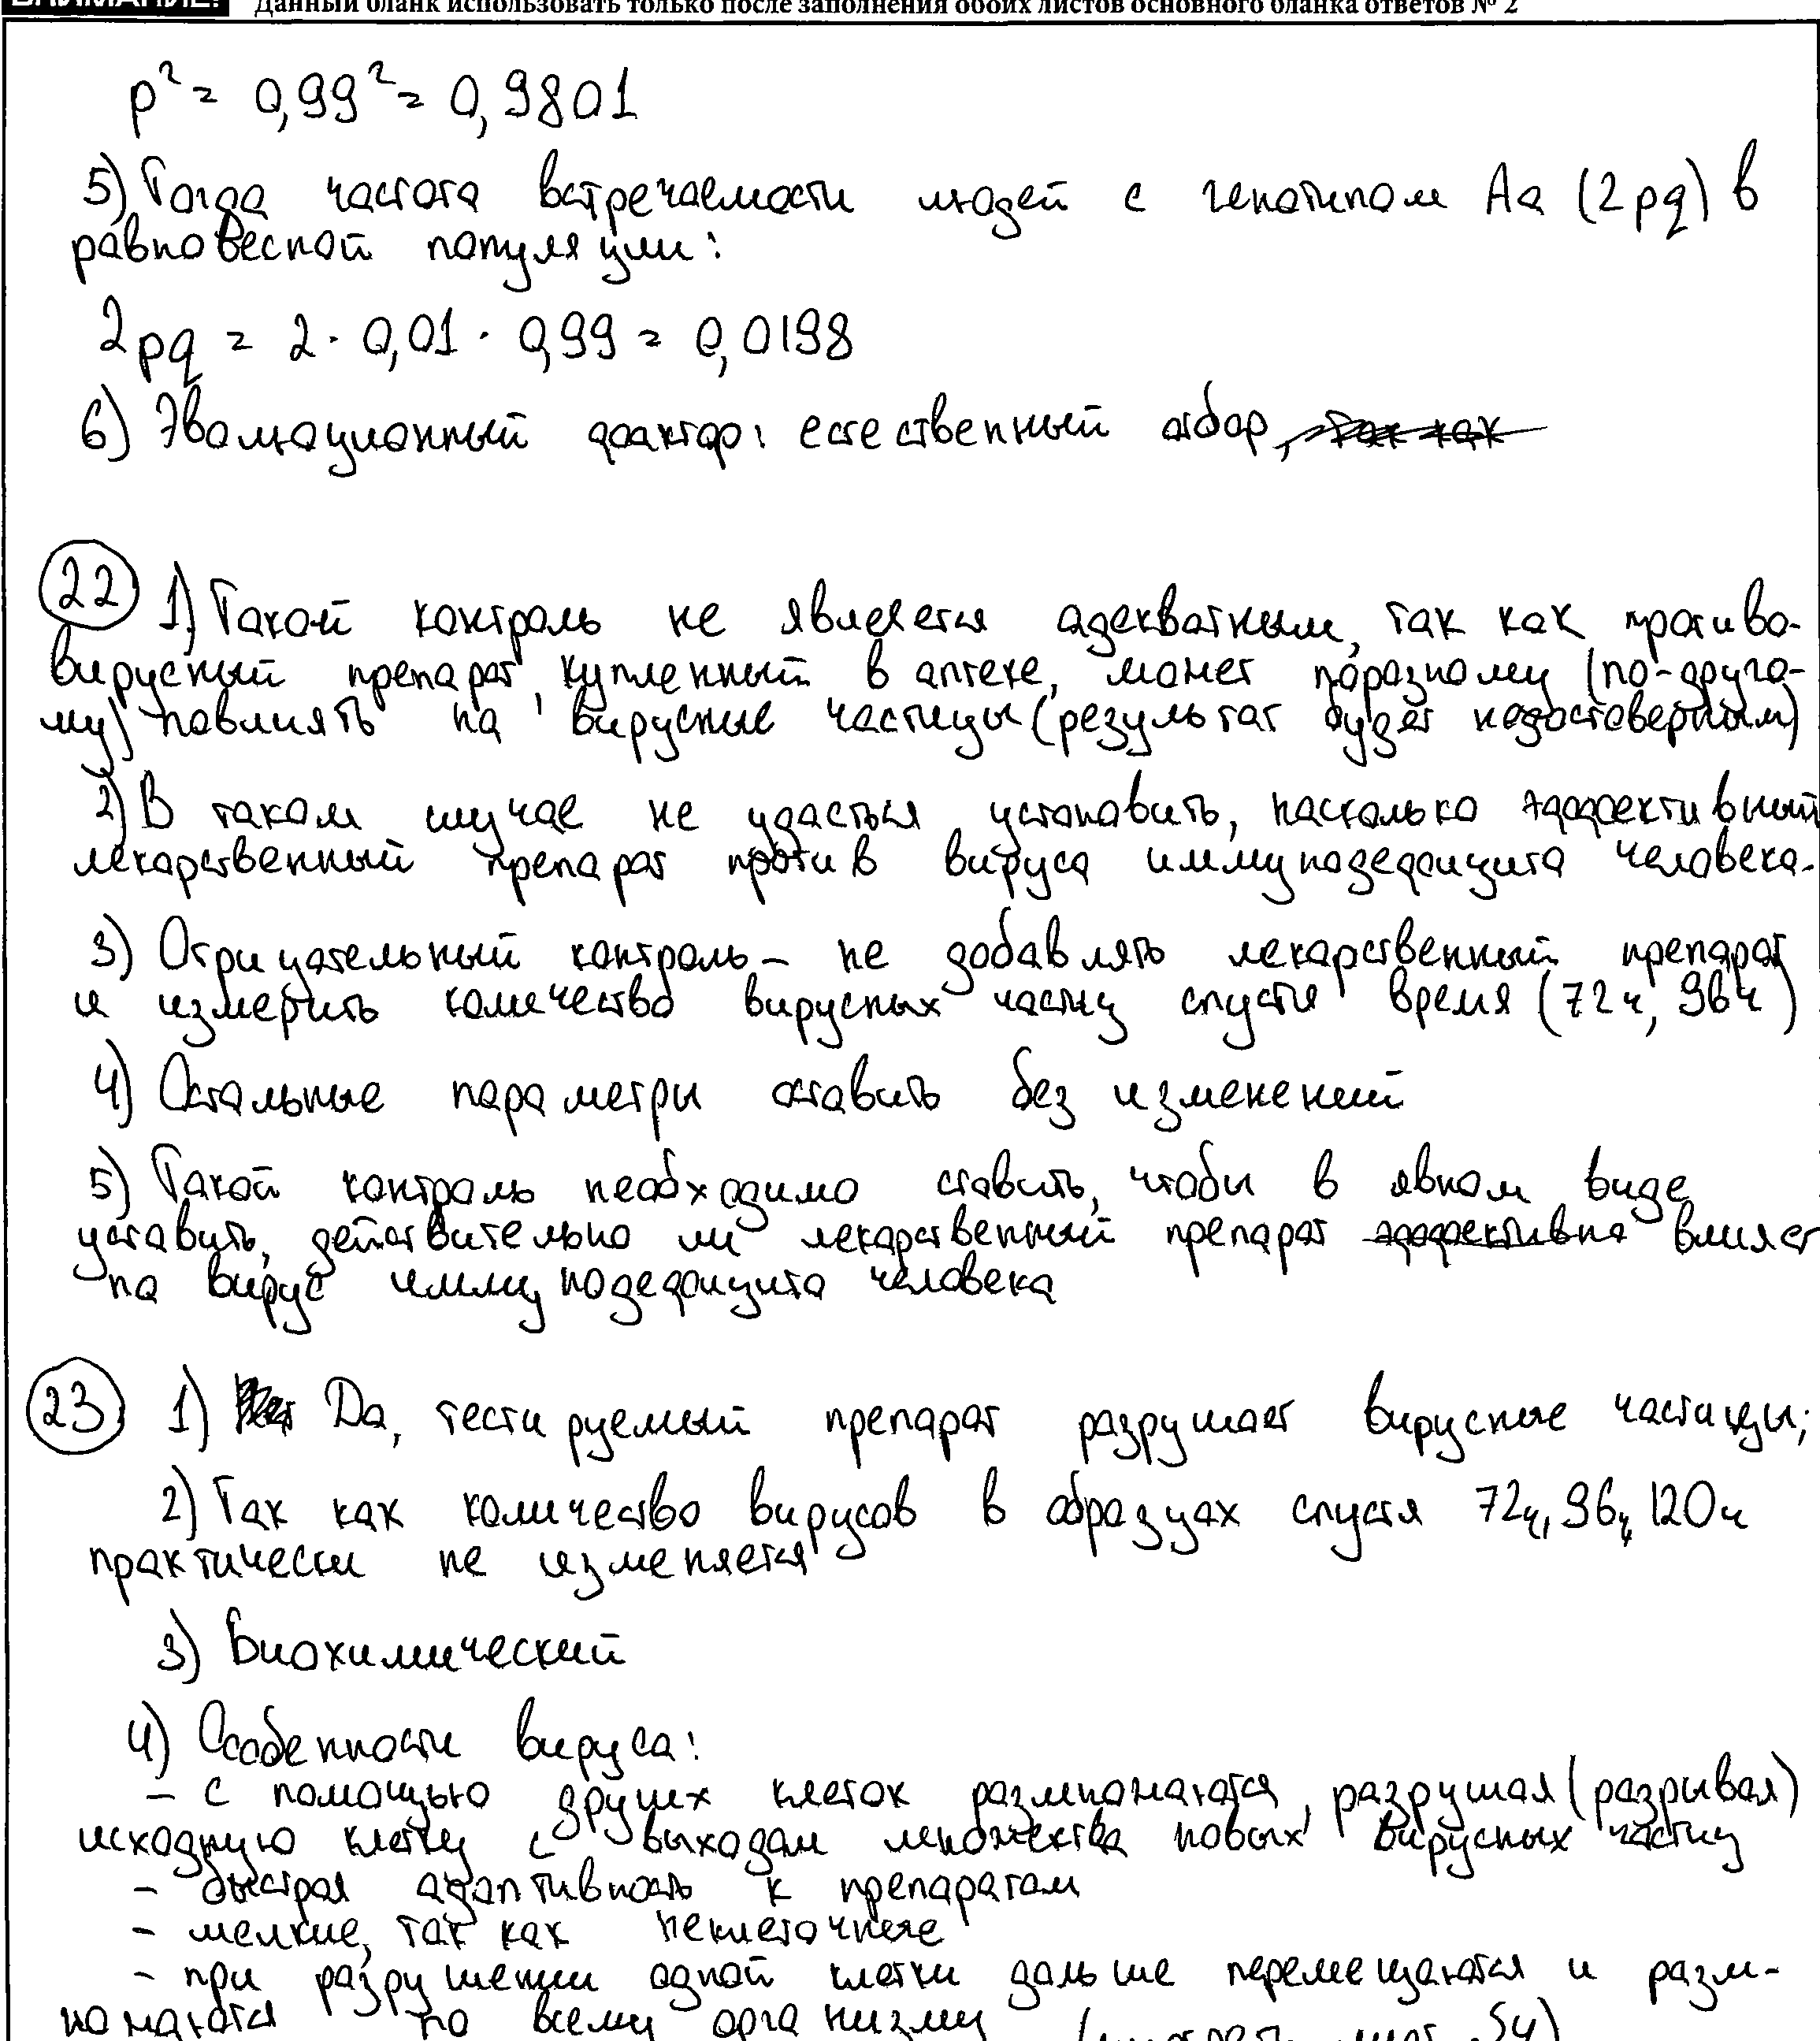 ВНИМАНИЕ! Данный бланк использовать только после заполнения обоих листов основного бланка ответов № 2
p² = 0,99² = 0,9801
5) Тогда частота встречаемости людей с генотипом Аа (2pq) в
равновесной популяции:
2pq = 2 · 0,01 · 0,99 = 0,0198
6) Эволюционный фактор: естественный отбор, так как
22 1) Такой контроль не является адекватным, так как противо-
вирусный препарат, купленный в аптеке, может поразному (по-друго-
му) повлиять на вирусные частицы (результат будет недостоверным)
2) В таком случае не удасться установить, насколько эффективный
лекарственный препарат против вируса иммунодефицита человека.
3) Отрицательный контроль – не добавлять лекарственный препарат
и измерить количество вирусных частиц спустя время (72ч, 96ч)
4) Остальные параметры оставить без изменений
5) Такой контроль необходимо ставить, чтобы в явном виде
уставить, действительно ли лекарственный препарат эффективно влияет
на вирус иммунодефицита человека
23 1) Да, тестируемый препарат разрушает вирусные частицы;
2) Так как количество вирусов в образцах спустя 72ч, 96ч, 120ч
практически не изменяется
3) Биохимический
4) Особенности вируса:
– с помощью других клеток размножаются, разрушая (разрывая)
исходную клетку с выходом множества новых вирусных частиц
– быстрая адаптивность к препаратам
– мелкие, так как неклеточные
– при разрушении одной клетки дальше перемещаются и разм-
ножаются по всему организму